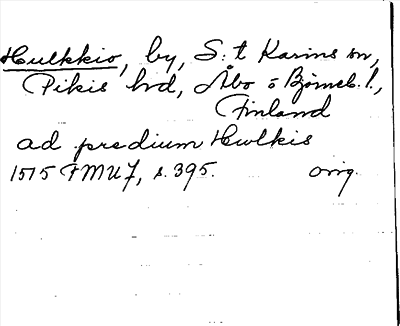 Hulkkio, by, S:t Karins sn,
Pikis hd, Åbo o Björneb. l.,
Finland
ad predium Hwlkis
1515 FMU 7, s. 395. orig.